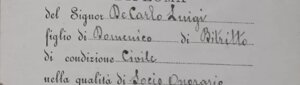 DIPLOMA
del Signor De Carlo Luigi
figlio di Domenico di Bitritto
di condizione Civile
nella qualità di Socio Operaio